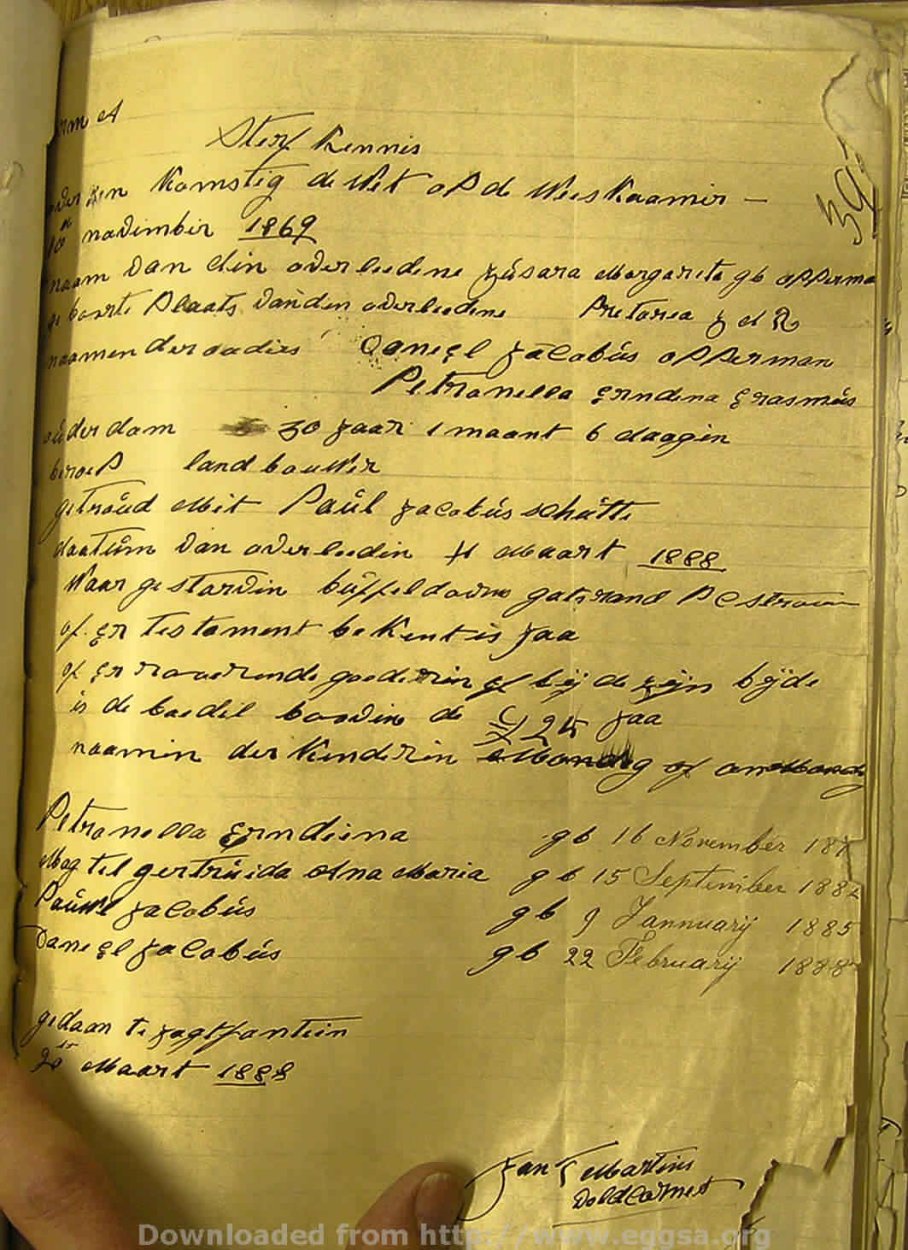 orm A
Sterf Kennis
39
onder den Komstig de Wet op de Wees Kaamir —
novimbir 1869
naam van din overleedene Susara Margarita gb opperma
geboorte Plaats vanden overleedene Pretoria Z A R
naamen der oudirs Daniel Jacobus opperman
Petronella Erndina Erasmus
ouderdom 30 Jaar 1 maant 6 daagen
beroep landbouwer
getroud Mit Paul Jacobus schutte
daatum van overleedin 4 Maart 1888
Waar gestorvin buffeldoorns gatsrand
of Er testament bekent is Jaa
of Er roerende goederin of bij de zijn bijde
is de boedel boovin de £ 25 Jaa
naamin der Kinderin Mondig of onMondig
Petronella Erndiena gb 16 November 187
Magtil gertruida Ana Maria gb 15 September 188
Jacobus gb 9 Jannuarij 1885
Daniel Jacobus gb 22 Februarij 1888
gedaan te Jagtfontein
20 Maart 1888
Jan Martins
Veldcornet
Downloaded from http://www.eggsa.org